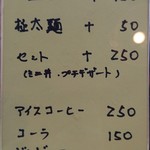 極太麺 + 50
セット + 250
(ミニ丼、プチデザート)
アイスコーヒー 250
コーラ 150